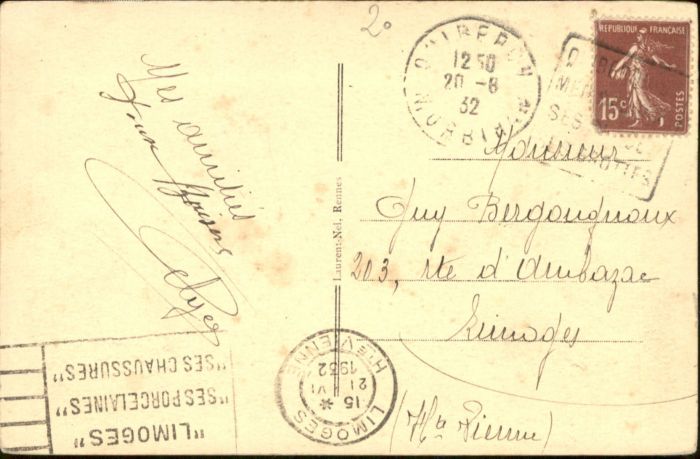 2°
QUIBERON
12 50
20 -8
32
MORBIHAN
REPUBLIQUE FRANÇAISE
15c
POSTES
Mes amitiés
Doux Baisers
Monsieur
Guy Bergougnoux
203, rte d'Ambazac
Limoges
(Hte Vienne)
Laurent-Nel, Rennes
"LIMOGES"
"SES PORCELAINES"
"SES CHAUSSURES"
LIMOGES
15 *
21 VI
1932
Hte VIENNE